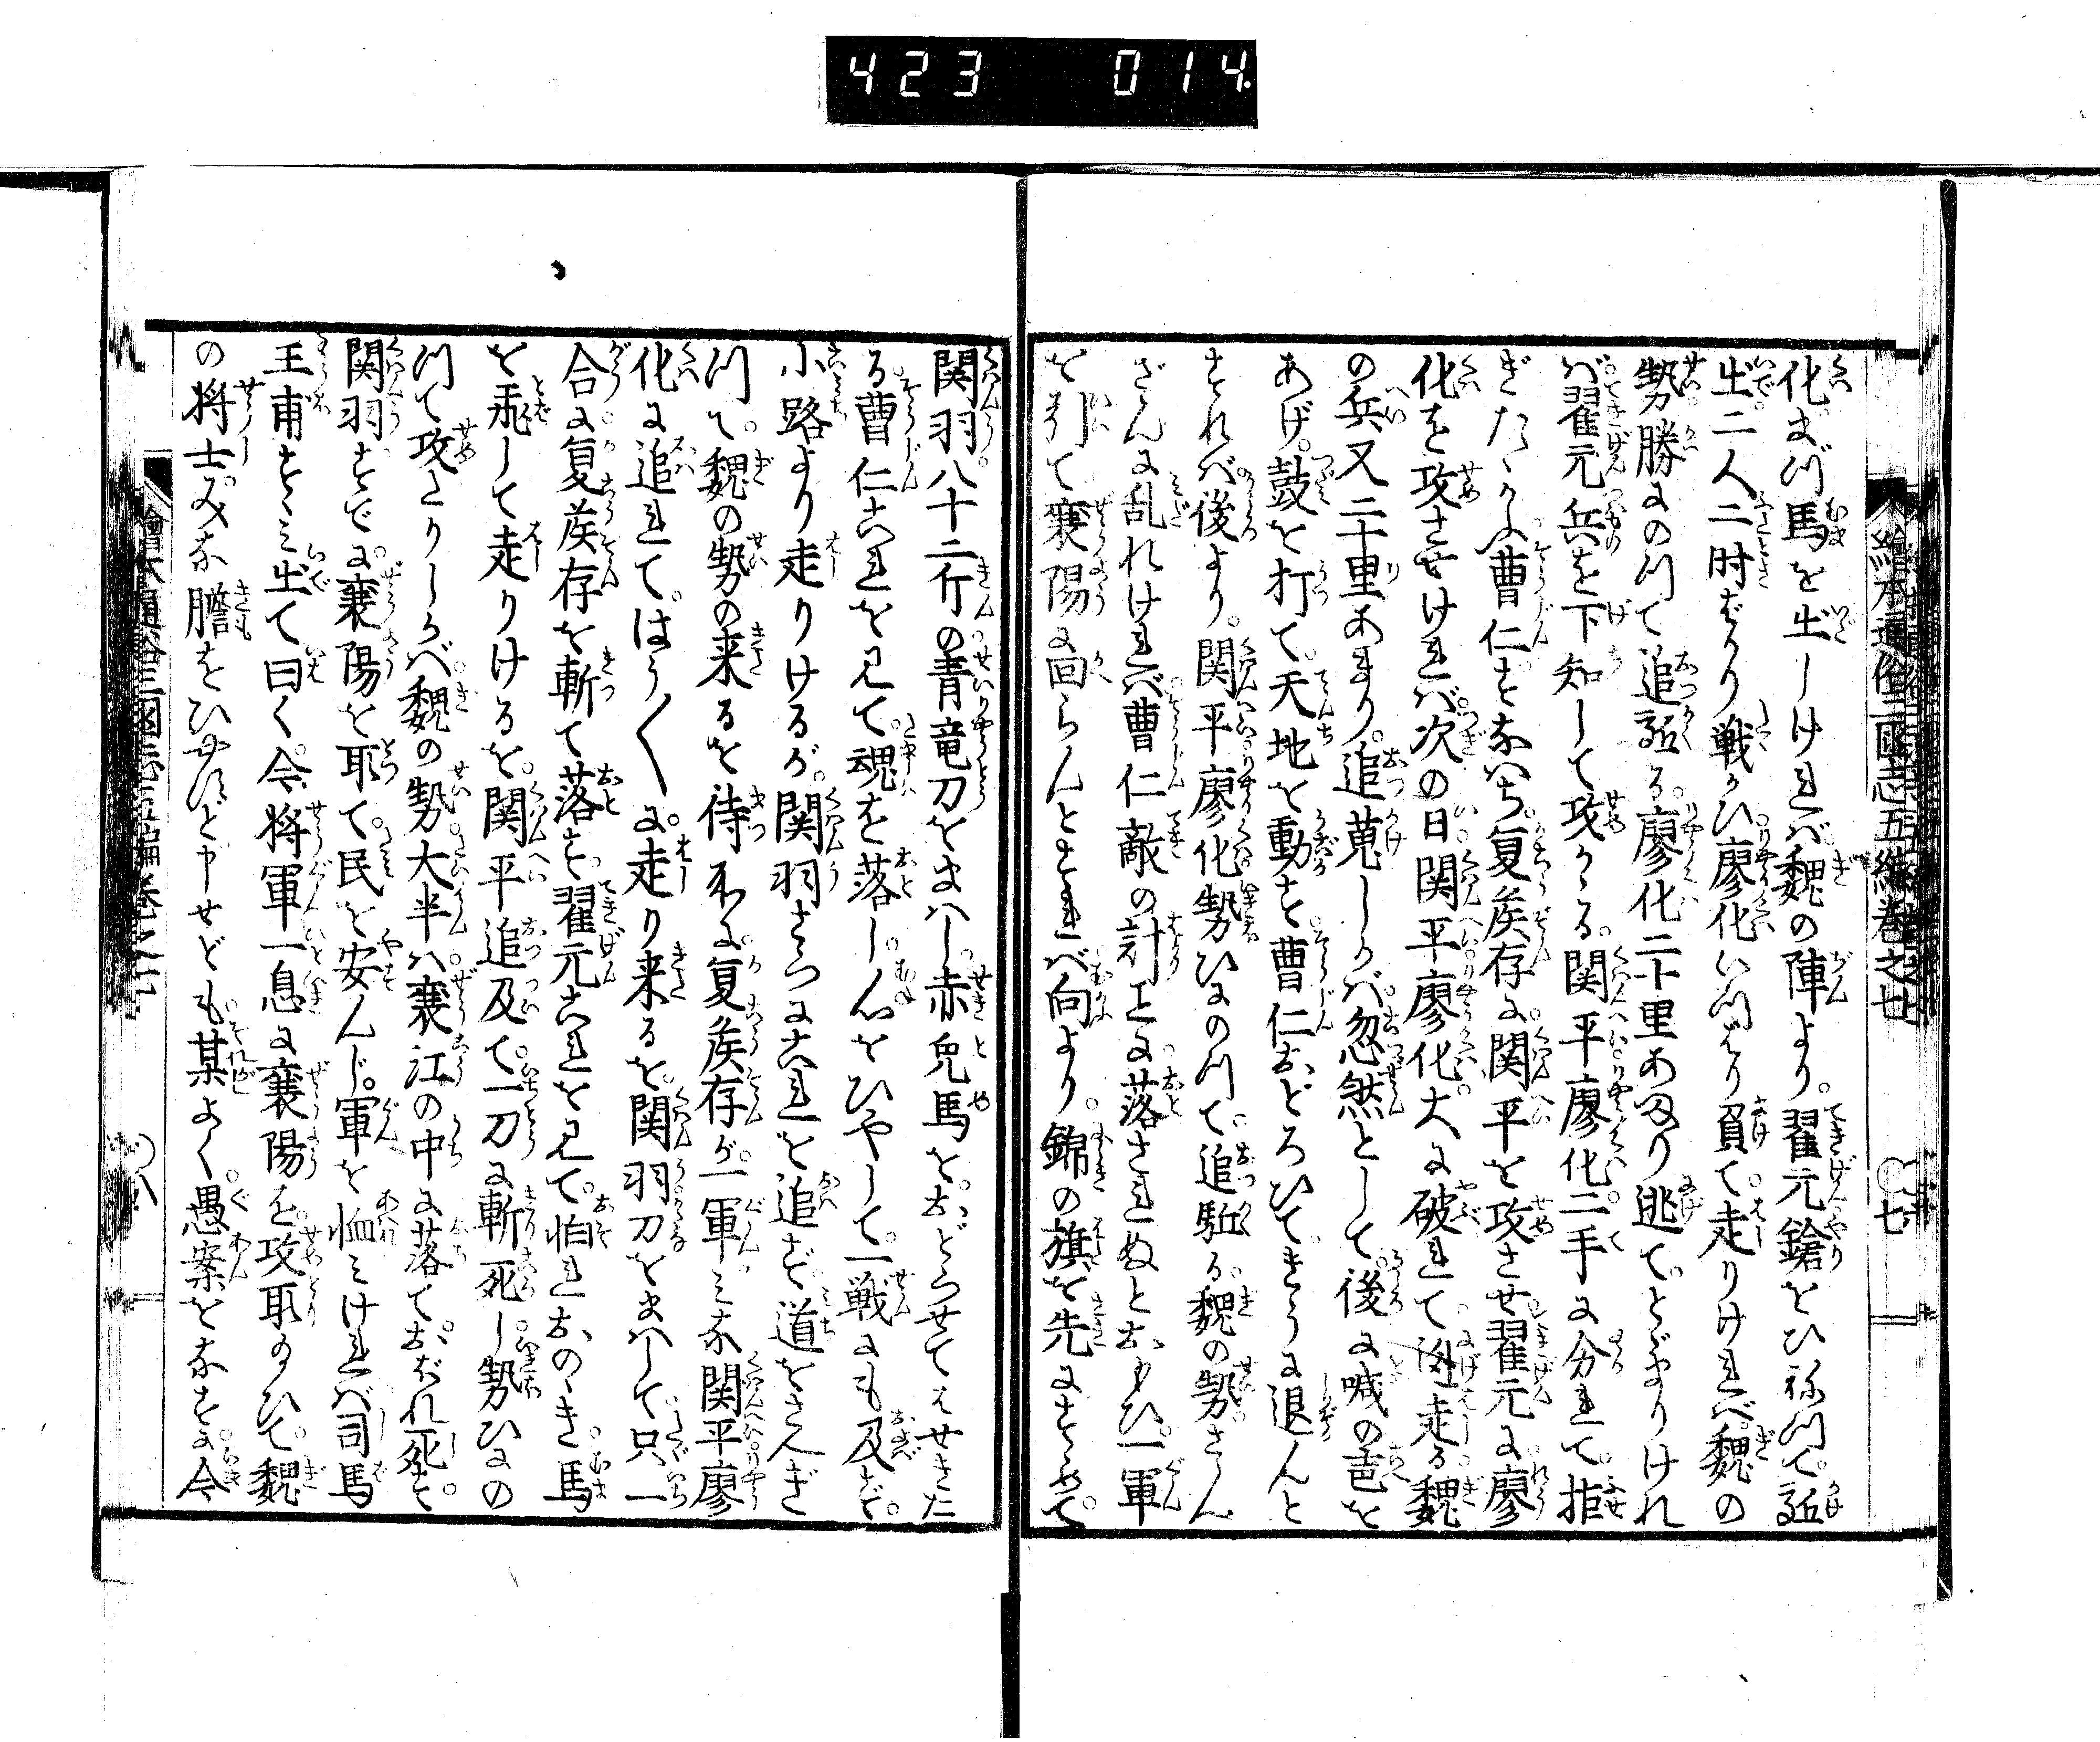 423 014
繪本通俗三國志五編卷之七 ○七
化まづ馬を出しければ魏の陣より。翟元鎗をひねつて詬
出二人二時ばかり戦ひ廖化いつはり負て。走りければ魏の
勢勝にのつて追詬る。廖化二十里あまり逃て。とゞまりけれ
ば翟元兵を下知して攻かゝる。関平廖化二手に分れて。拒
ぎたゝかふ曹仁すなはち夏侯存に関平を攻させ翟元に廖
化を攻させければ。次の日関平廖化。大に破れて。迯走る魏
の兵又二十里あまり。追蒐しかば忽然として。後に喊の声を
あげ。鼓を打て。天地を動す曹仁おどろひてきうに退んと
すれば後より。関平廖化勢ひにのつて。追駈る。魏の勢さん
ざんに乱れければ曹仁敵の計ことに落されぬとおもひ。一軍
を引て襄陽に回らんとすれば向より。錦の旗を先にすゝめて。
関羽。八十二斤の青竜刀をまはし赤兎馬を。おどらせてはせきた
る曹仁これを見て。魂を落し。心をひやして。一戦にも及ばず。
小路より走りけるが。関羽さらにこれを追ず。道をさへぎ
つて。魏の勢の来るを待所に。夏侯存が。一軍。みな関平廖
化に追れて。はう〳〵に。走り来るを。関羽刀をまはして。只一
合に夏侯存を斬て落す翟元これを見て。怕れおのゝき。馬
を飛して走りけるを。関平追及て。一刀に斬死し。勢ひにの
つて攻たりしかば。魏の勢大半は。襄江の中に落て。おぼれ死す。
関羽。すでに。襄陽を取て。民を安んじ。軍を恤みければ司馬
王甫すゝみ出て曰く。今。将軍一息に襄陽を。攻取給ひて。魏
の将士。みな膽をひやすほどに申せども。某よく。愚案をなすに今
繪本通俗三國志五編卷之七 ○八